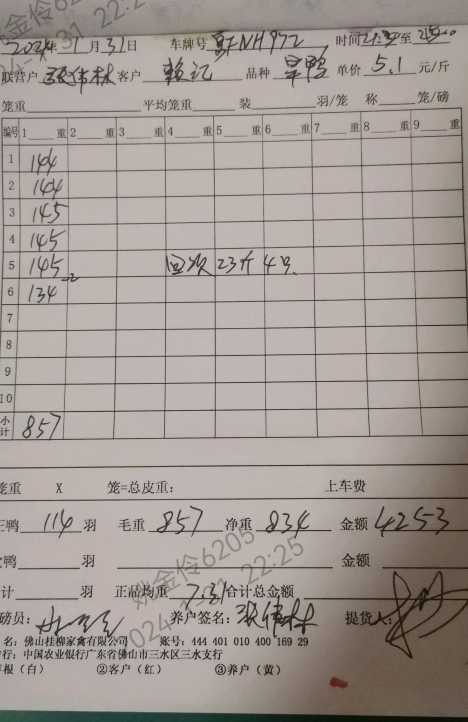 2024年1月31日 车牌号 NH972 时间 至
联营户 张伟林 客户 赖记 品种 旱鸭 单价 5.1 元/斤
笼重 平均笼重 装 羽/笼 称 笼/磅
编号 1 重 2 重 3 重 4 重 5 重 6 重 7 重 8 重 9 重
1 144
2 144
3 145
4 145
5 145 23斤4只
-2
6 134
7
8
9
10
小计 857
笼重 X 笼=总皮重: 上车费
正鸭 114 羽 毛重 857 净重 834 金额 4253
鸭 羽 金额
计 羽 正品均重 7.31 合计总金额
磅员: 养户签名: 张伟林 提货人:
名: 佛山桂柳家禽有限公司 账号: 444 401 010 400 169 29
行: 中国农业银行广东省佛山市三水区三水支行
根（白） ②客户（红） ③养户（黄）
姚金伶6205
2024 31 22:25